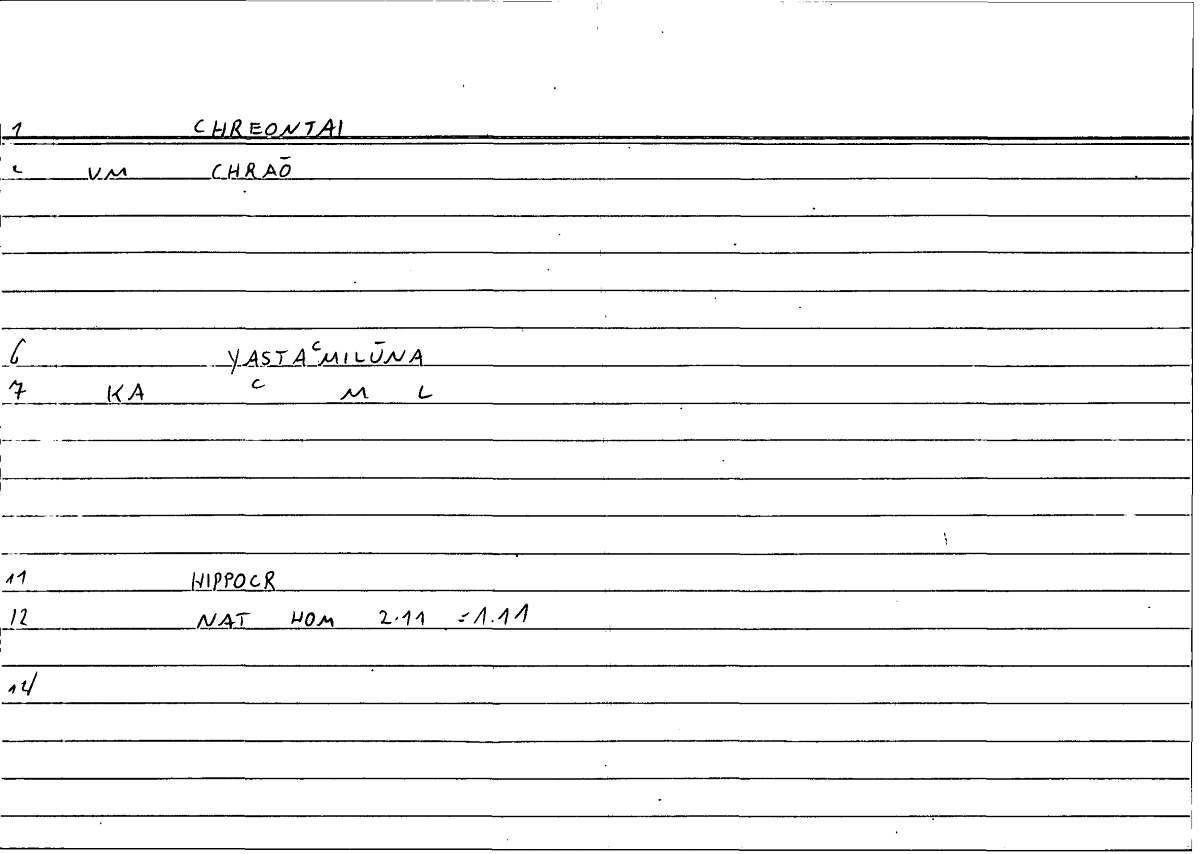 1 CHREONTAI
2 VM CHRAŌ
6 YASTAᶜMILŪNA
7 KA ᶜ M L
11 HIPPOCR
12 NAT HOM 2.11 =1.11
14